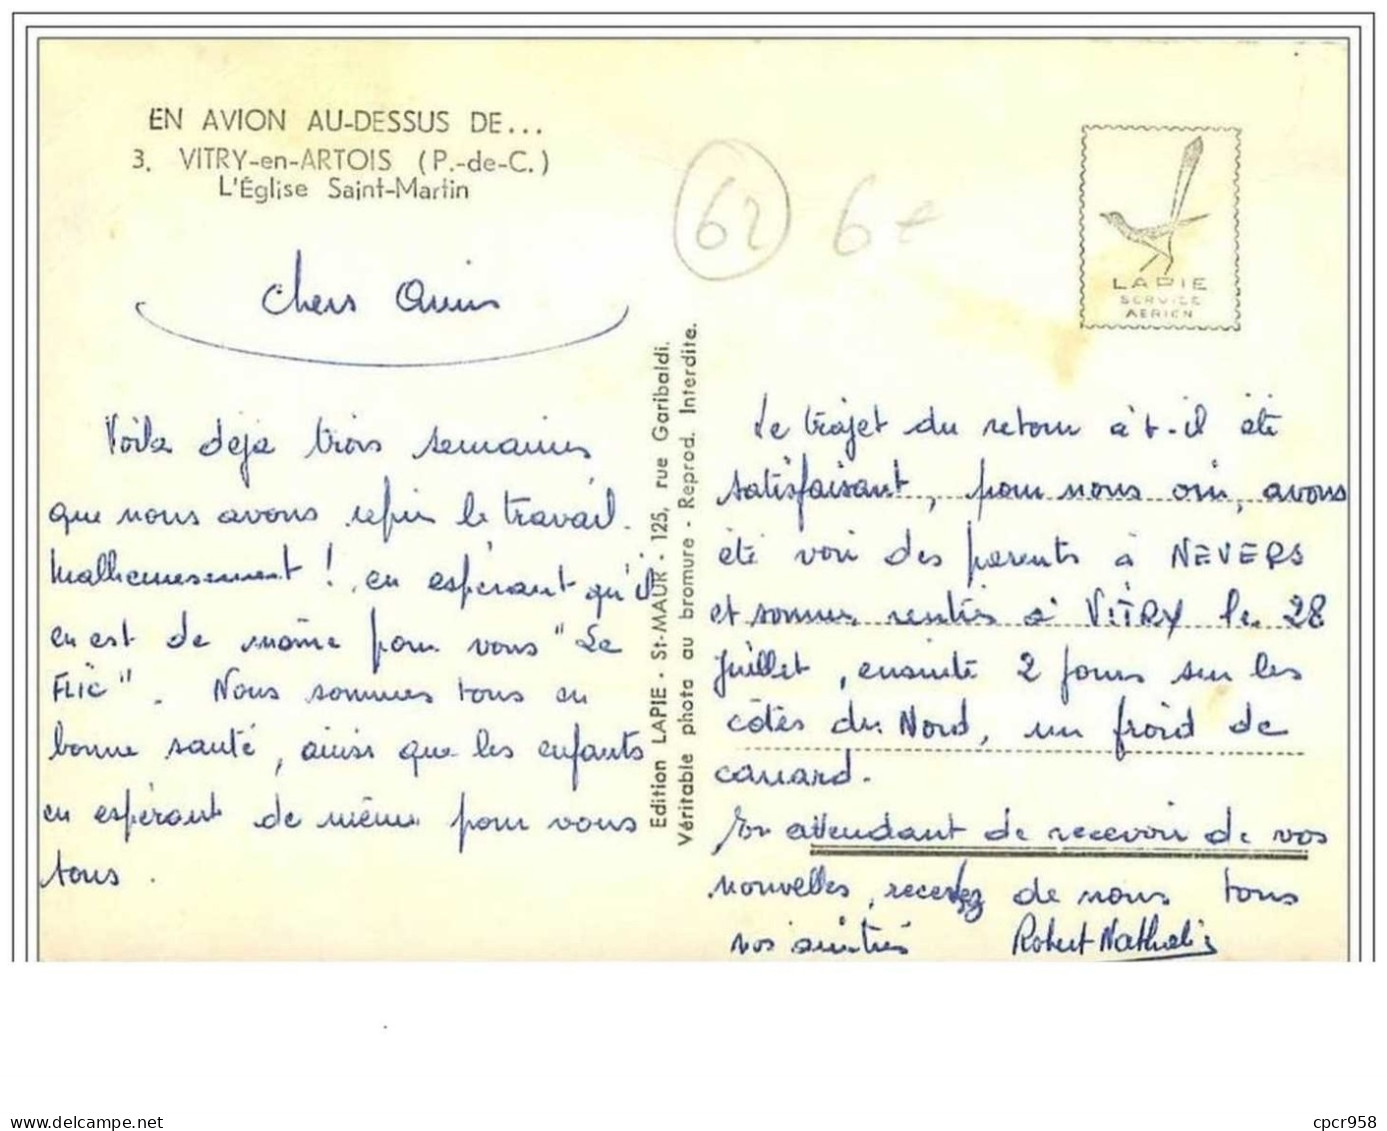 EN AVION AU-DESSUS DE...
3. VITRY-en-ARTOIS (P.-de-C.)
L'Église Saint-Martin
62
6 €
LAPIE
SERVICE
AERIEN
Chers Amis
Voila deja trois semaines
que nous avons repris le travail.
Malheureusement ! en espérant qu'il
en est de même pour vous "Le
FLIC". Nous sommes tous en
bonne santé, ainsi que les enfants
en espérant de même pour vous
tous.
Edition LAPIE - St-MAUR - 125, rue Garibaldi.
Véritable photo au bromure - Reprod. Interdite.
Le trajet du retour à t-il été
satisfaisant, pour nous oui, avons
été voir des parents à NEVERS
et sommes rentrés à VITRY le 28
juillet, ensuite 2 jours sur les
côtes du Nord, un froid de
canard.
En attendant de recevoir de vos
nouvelles, recevez de nous tous
nos amitiés Robert Nathalie
cpcr958